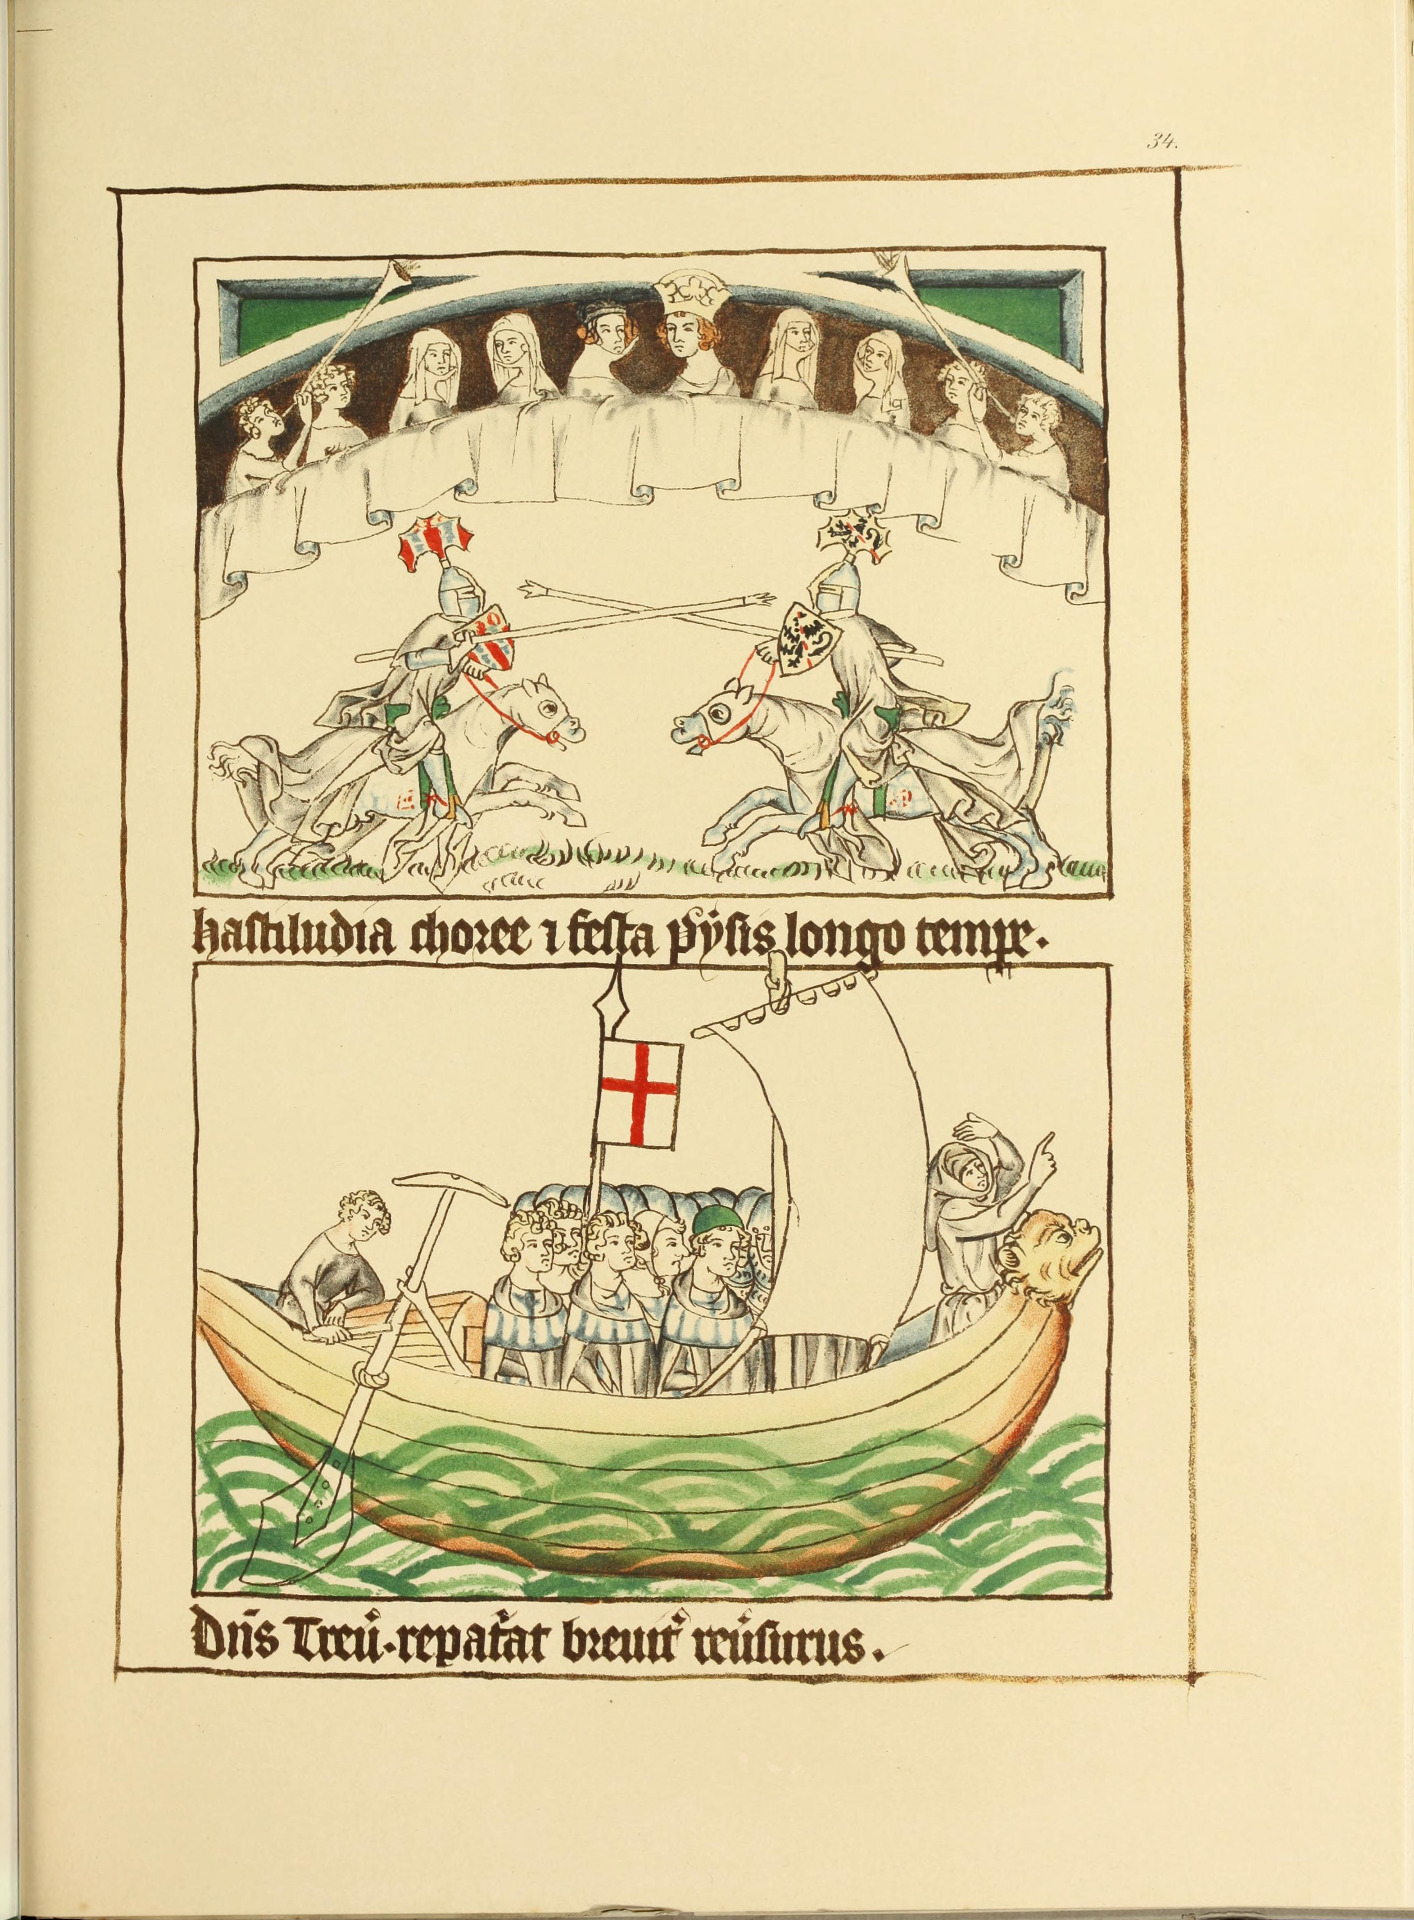 34.
hastiludia choree ⁊ festa p̄ysis longo temp̲e.
Dn̄s Treu̓. repat̓at breuit̓ reu̓surus.